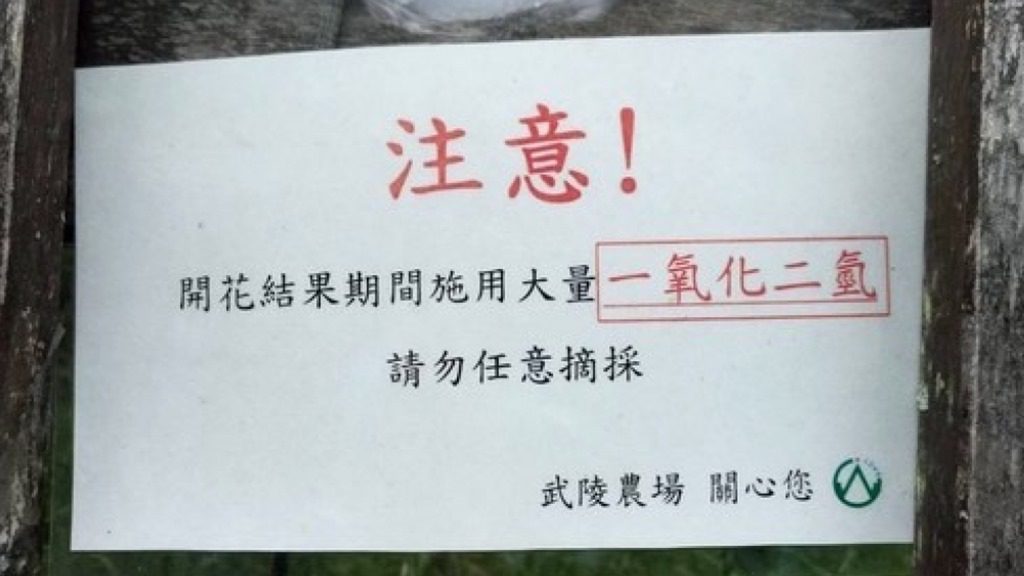 注意!
開花結果期間施用大量一氧化二氫
請勿任意摘採
武陵農場 關心您